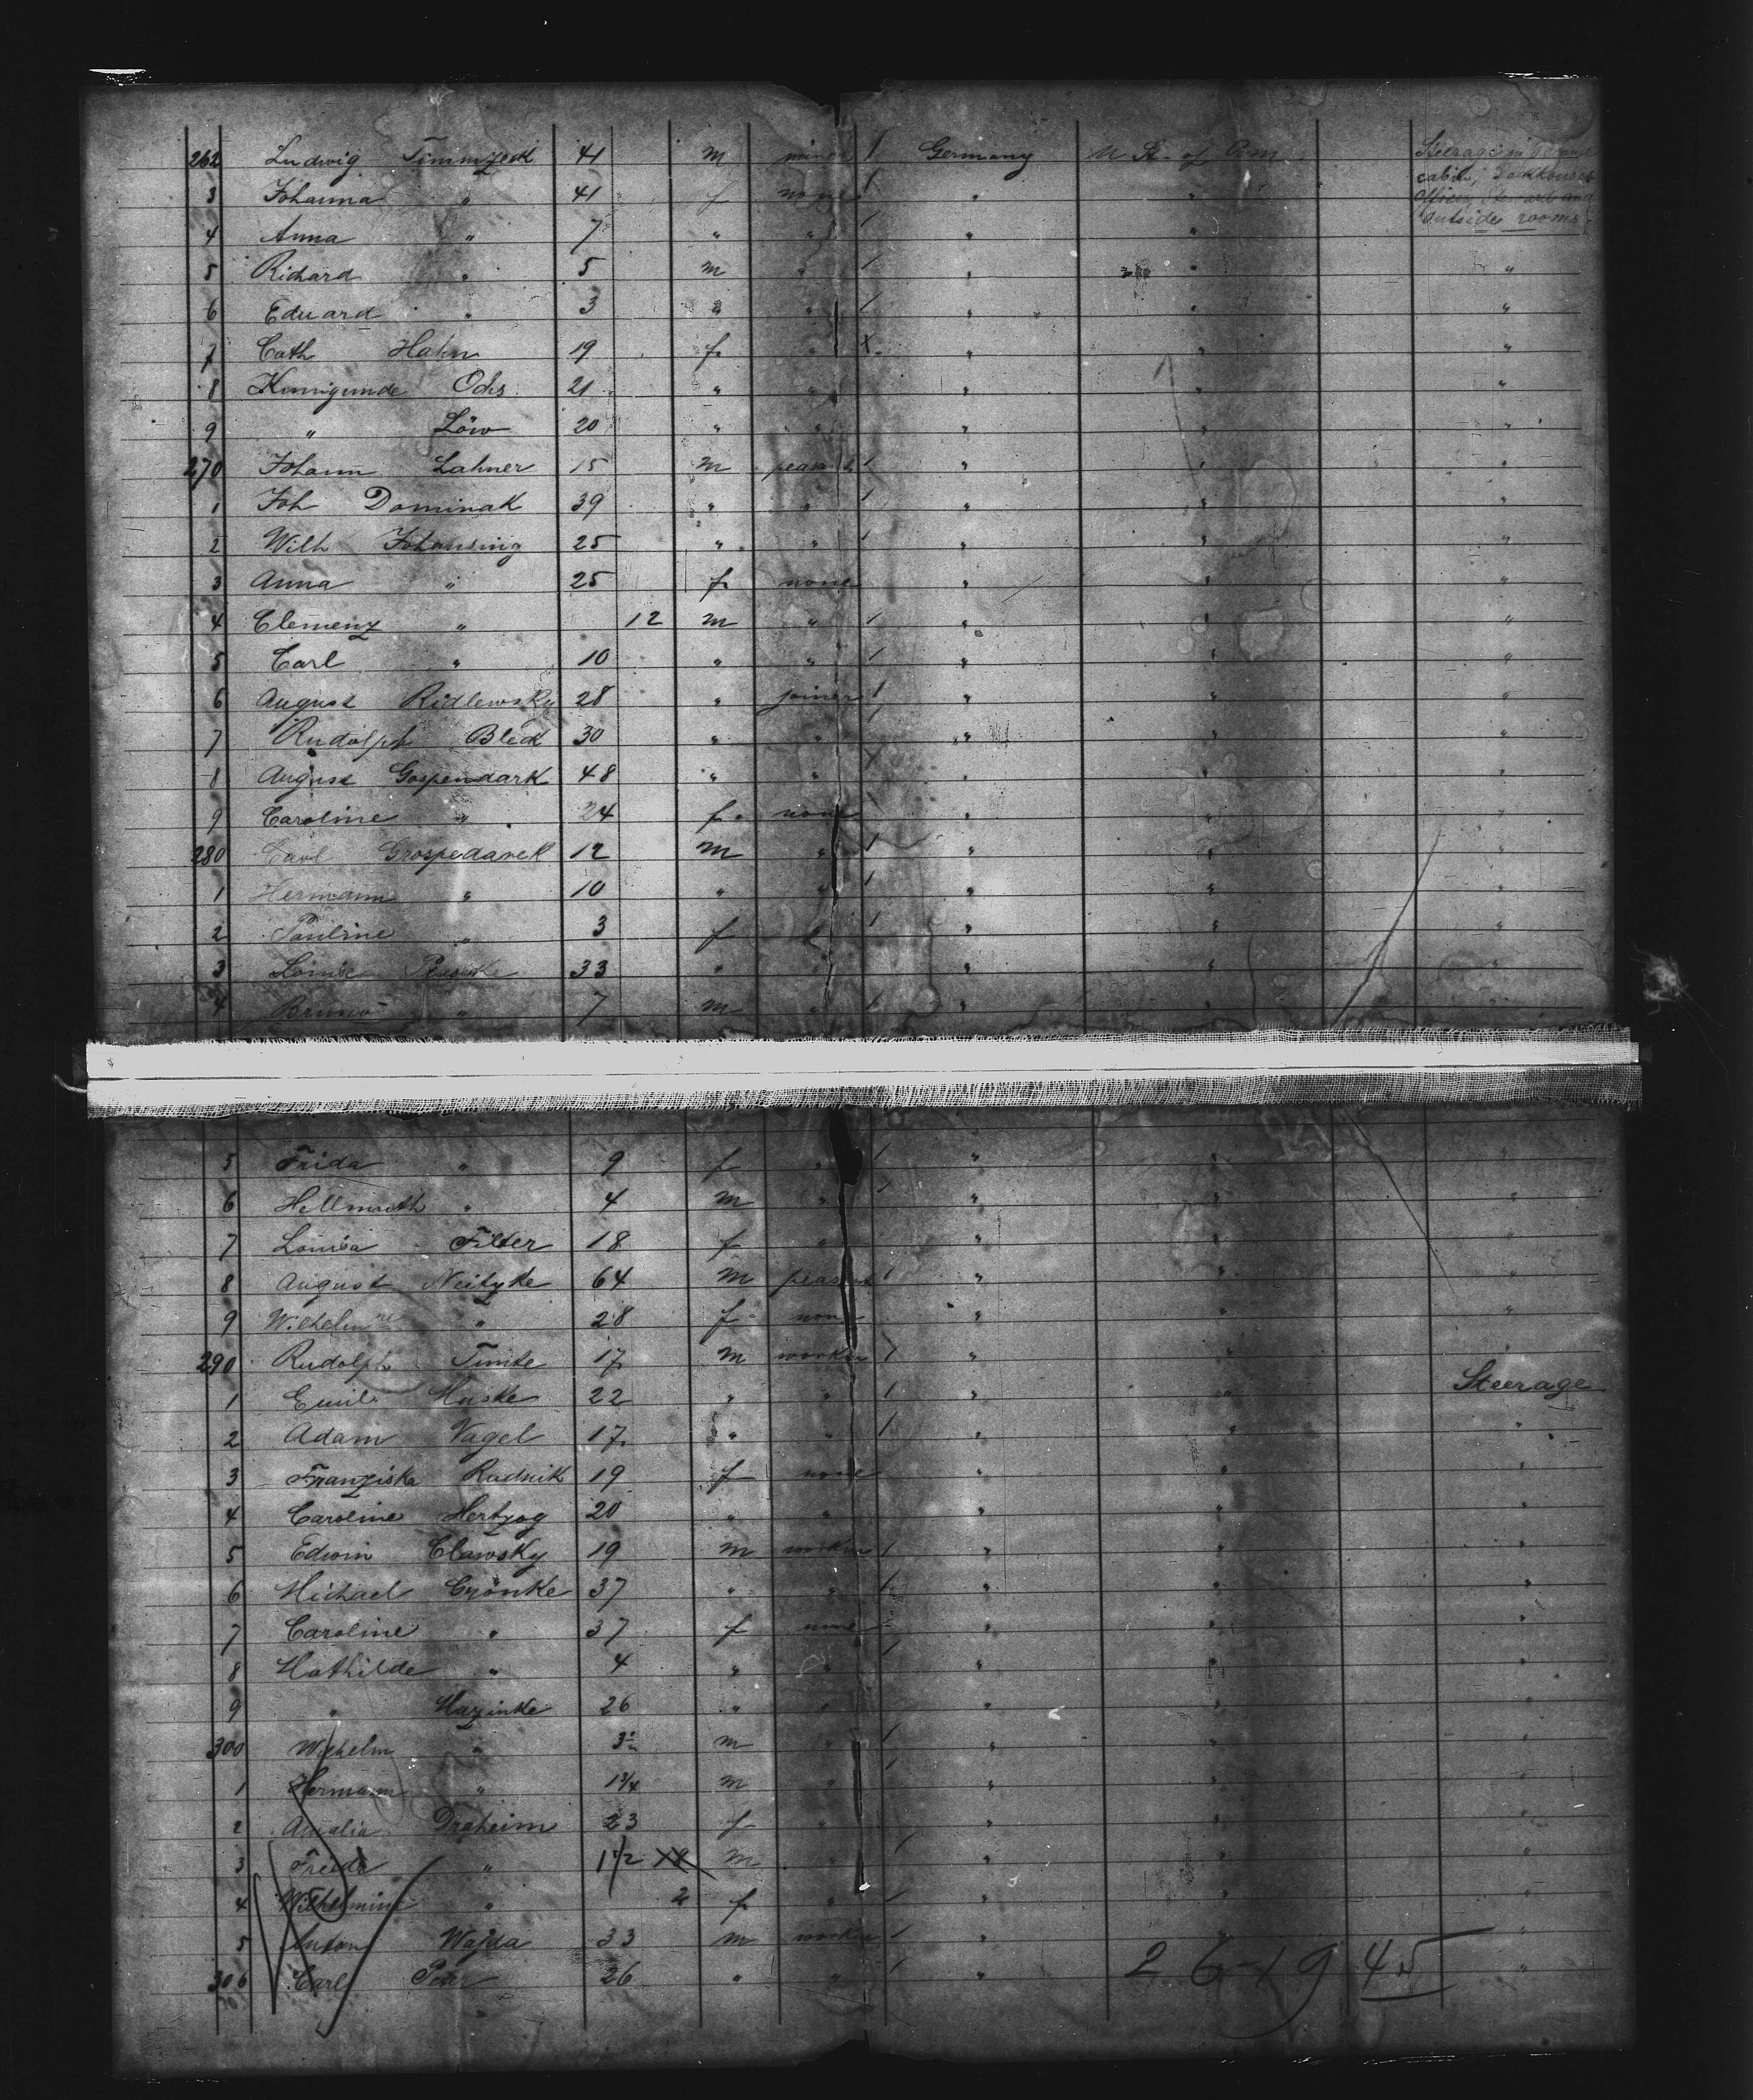 262 Ludwig Timmzeck 41 m miner / Germany U St. of Am. Steerage in
cabin, Deckhouses
3 Johanna " 41 f none / " " Officers, Steward and
outside rooms.
4 Anna " 7 " " / " "
5 Richard " 5 m " / " " "
6 Eduard " 3 " " / " " "
7 Cath Hahn 19 f " X " " "
8 Kunigunde Ochs 21 " " " " "
9 " Löw 20 " " " " "
270 Johann Lahner 15 m peasant / " " "
1 Joh Dominak 39 " " / " " "
2 Wilh Johansing 25 " " / " " "
3 Anna " 25 f none " " "
4 Clemenz " 12 m " / " " "
5 Carl " 10 " " / " " "
6 August Ridlewsky 28 " joiner / " " "
7 Rudolph Bleck 30 " " / " " "
8 August Gospendark 48 " " X " " "
9 Caroline " 24 f none " " "
280 Carl Grospedarek 12 m " / " " "
1 Hermann " 10 " " / " " "
2 Pauline " 3 f " / " " "
3 Louise 33 " " " " "
4 Bruno " 7 m " / " " "
5 Frida " 9 f " / " " "
6 Hellmuth " 4 m " / " " "
7 Louisa Filter 18 f " " " "
8 August Neitzke 64 m peasant / " " "
9 Wilhelmine " 28 f none " " "
290 Rudolph Timte 17 m worker / " " "
1 Emil Huske 22 " " / " " Steerage
2 Adam Vagel 17 " " / " " "
3 Franziska Rudnik 19 f none " " "
4 Caroline Hertzog 20 " " " " "
5 Edwin Clawsky 19 m worker / " " "
6 Michael Crönke 37 " " / " " "
7 Caroline " 37 f none " " "
8 Mathilde " 4 " " / " " "
9 " Mazinke 26 " " " " "
300 Wilhelm " m " / " " "
1 Hermann " 1 3/4 m " / " " "
2 Amalia Draheim 23 f " " " "
3 Frieda " 1 1/2 m " / " " "
4 Wilhelmine " 2 f " / " " "
5 Anton Wajda 33 m worker / " "
306 Carl 26 " " / " 26-19 45 "